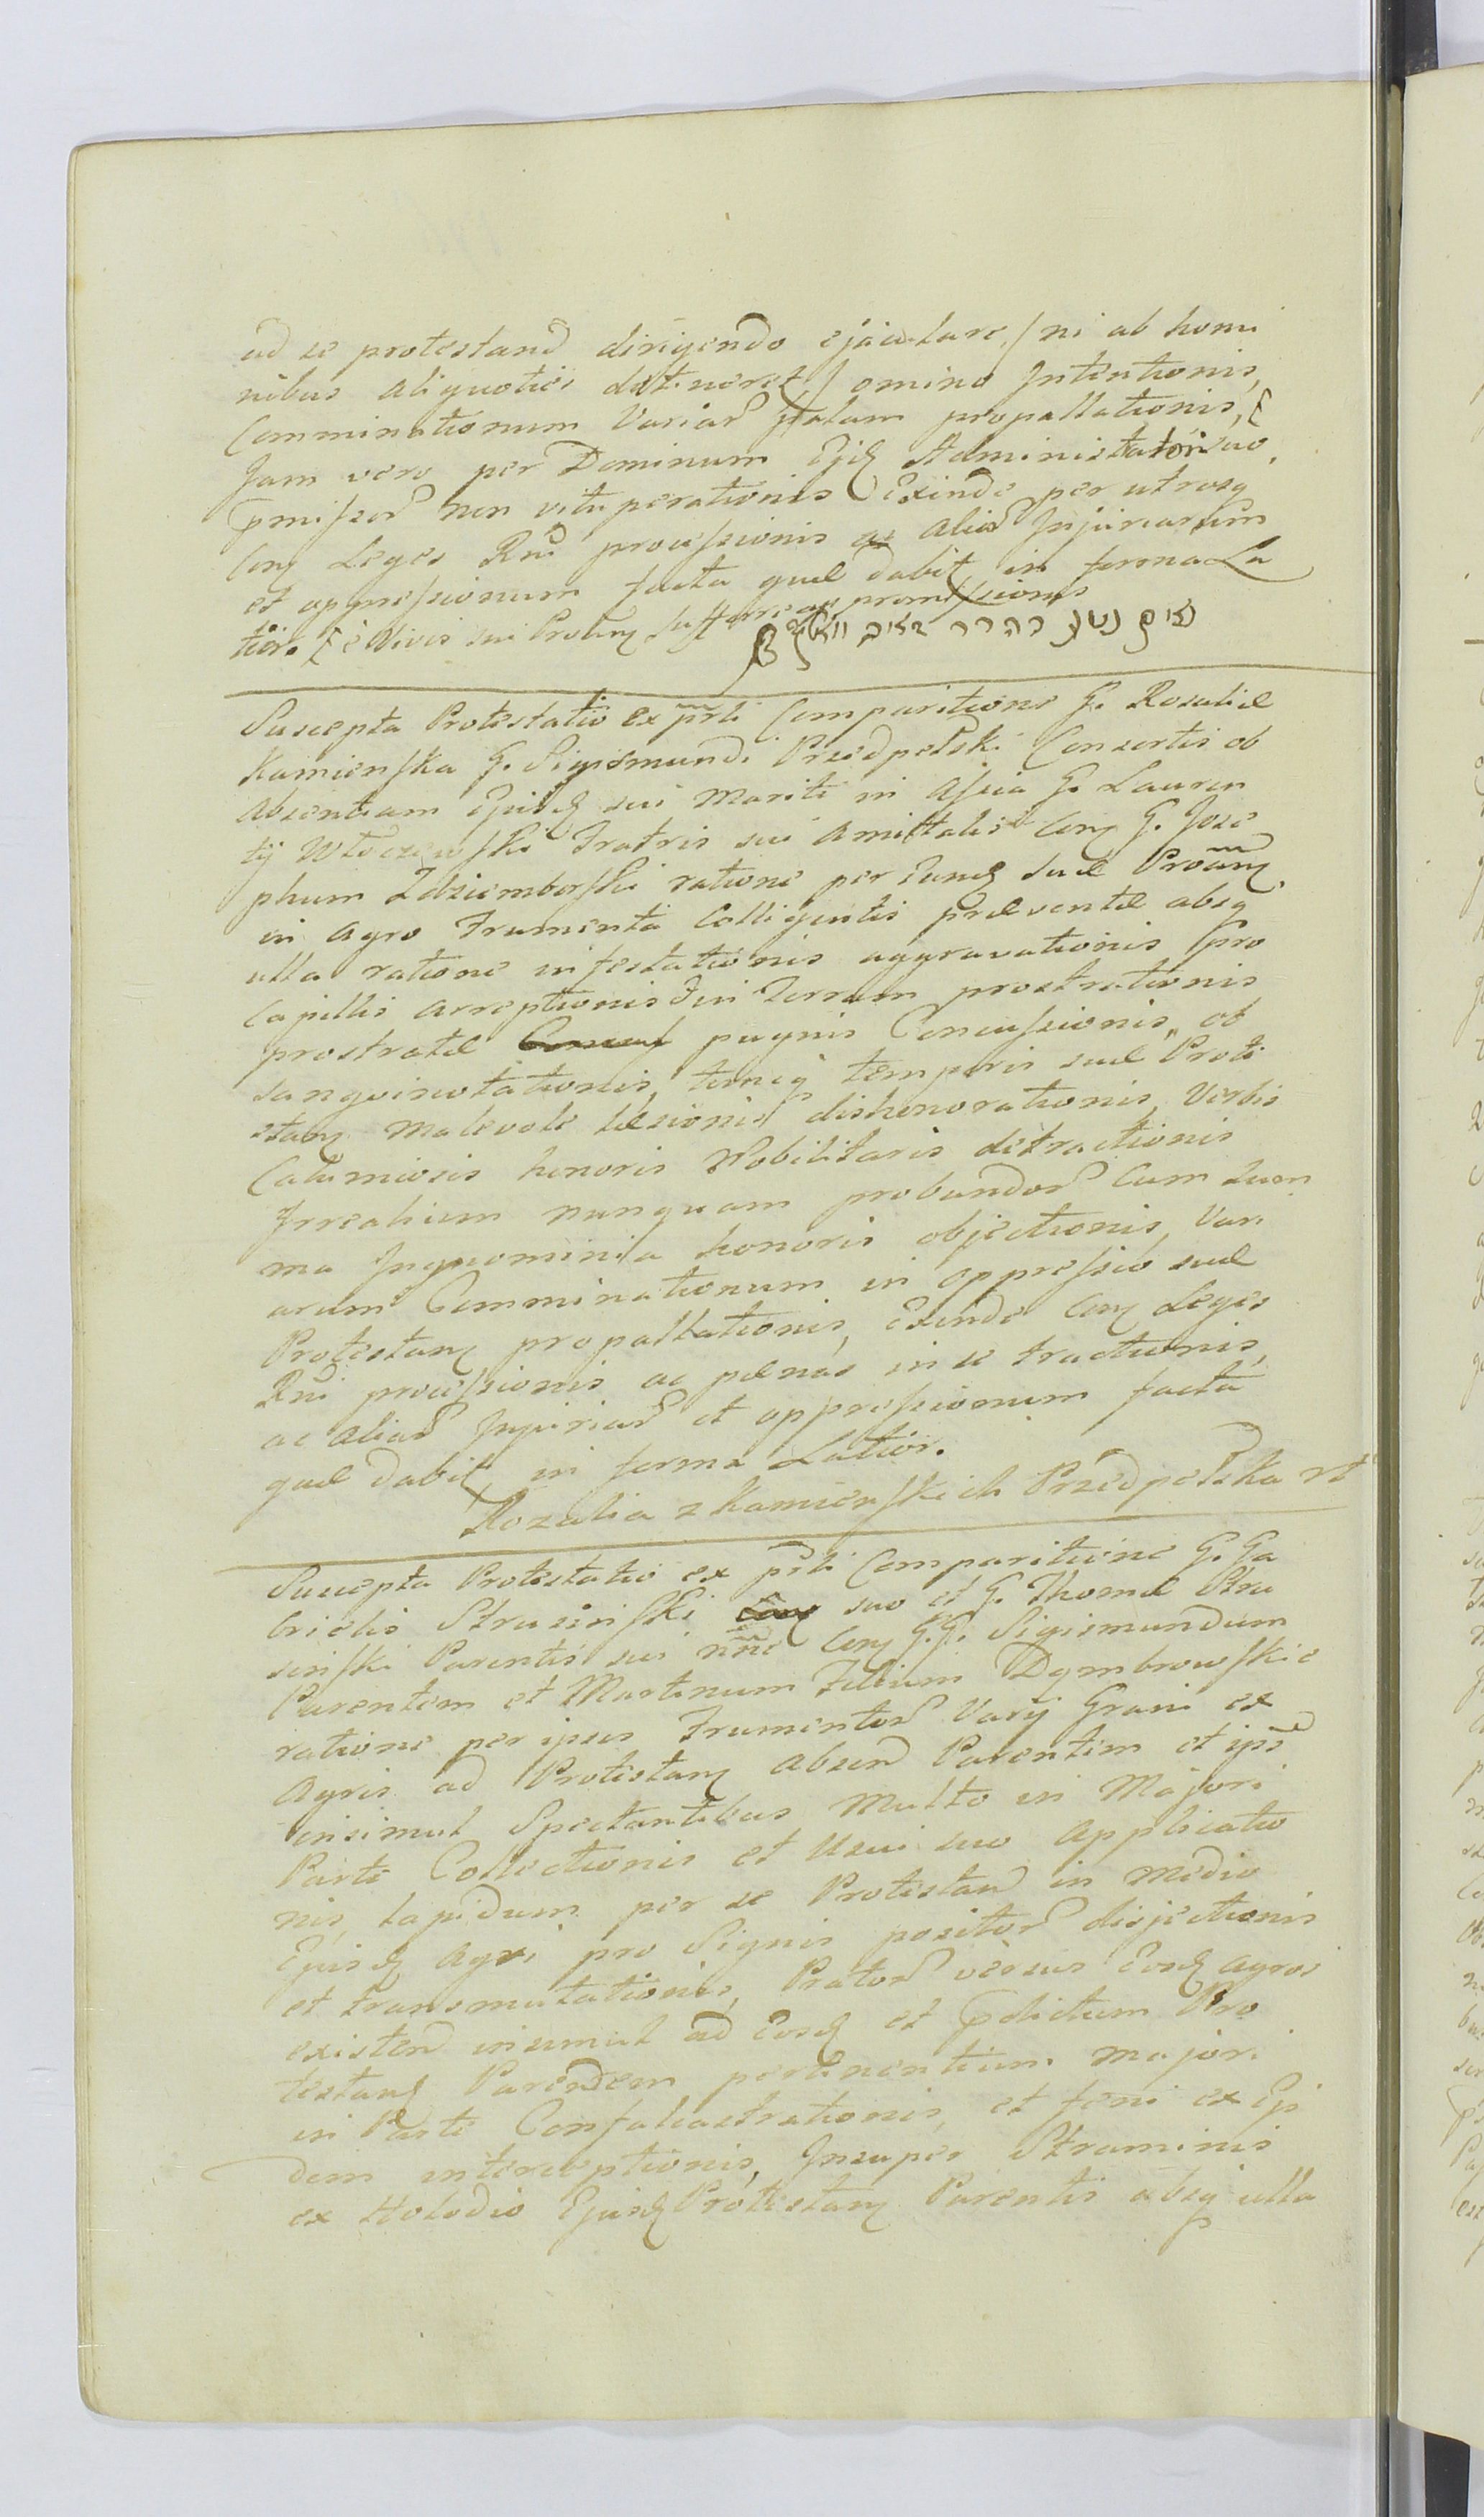 ad se protestand dirigendo ejaculare, / ni ab homi
nibus aliquoties detineret / omino Intentionis,
Comminationum Variar palam propallationis,
Jam vero per Dominum Ejd Administratori suo,
pmissor non vituperationis Exinde per utrosq
Con Leges Rni processionis ac aliar Injuriarum
et oppressionum facta quæ dabit in forma La
tior. è vivis sui
נאים נטע בהרר
Suscepta Protestatio ex pnti Comparitione G. Rosaliæ
Kamienska G. Sigismundi Przedpelski Consortis ob
absentiam Ejusd sui Mariti in assia G. Lauren
tij Włoczewski Fratris sui Amittalis Con G. Jose
phum Zdziemborski ratione per Eund suæ Protan
in Agro Frumenta Colligentis præsentæ absq
ulla ratione infestationis aggravationis pro
Capillis arreptionis in Terram prostrationis
prostratæ pugnis Concussionis, ob
sangvinotationis, tuncq temporis suæ Prote
stan malevole læsionis dishonorationis, Verbis
Calumiosis honoris Nobilitaris detractionis
Irrealium nunquam probandor Cum sum
ma Ingnominia honoris objectionis, Vari
arum Comminationum in oppressio suæ
Protestan propallationis, Exinde Con Leges
Rni processionis ac pænas in se tractionis,
ac aliar Injuriar et oppressionum facta
quæ dabit in forma Latior.
Rozalia z Kamienskich Przedpełska
Suscepta Protestatio ex pnti Comparitione G. Ga
brielis Strusinski suo et G. Thomæ Stru
sinski Parentis sui nne Con G.G. Sigismundum
Parentem et Martinum Filium Dymbrowskie
ratione per ipsos Frumentor Varij Grani ex
Agris ad Protestan absend Parentem et ipse
insimul Spectantibus Multo in Majori
Parte Collectionis et Usui suo applicatio
nis, lapidum per se Protestand in medio
Ejusd Agri pro Signis positor disjectionis
et transmutationis, Prator versus Eosd agros
existend insimul ad Eosd et pdictum Pro
testand Parendem pertinentium majori
in Parte Confalcastrationis, et feni ex Ijs
dem interceptionis, Insuper Straminis
ex Holodio Ejusd Protestan Parentis absq ulla